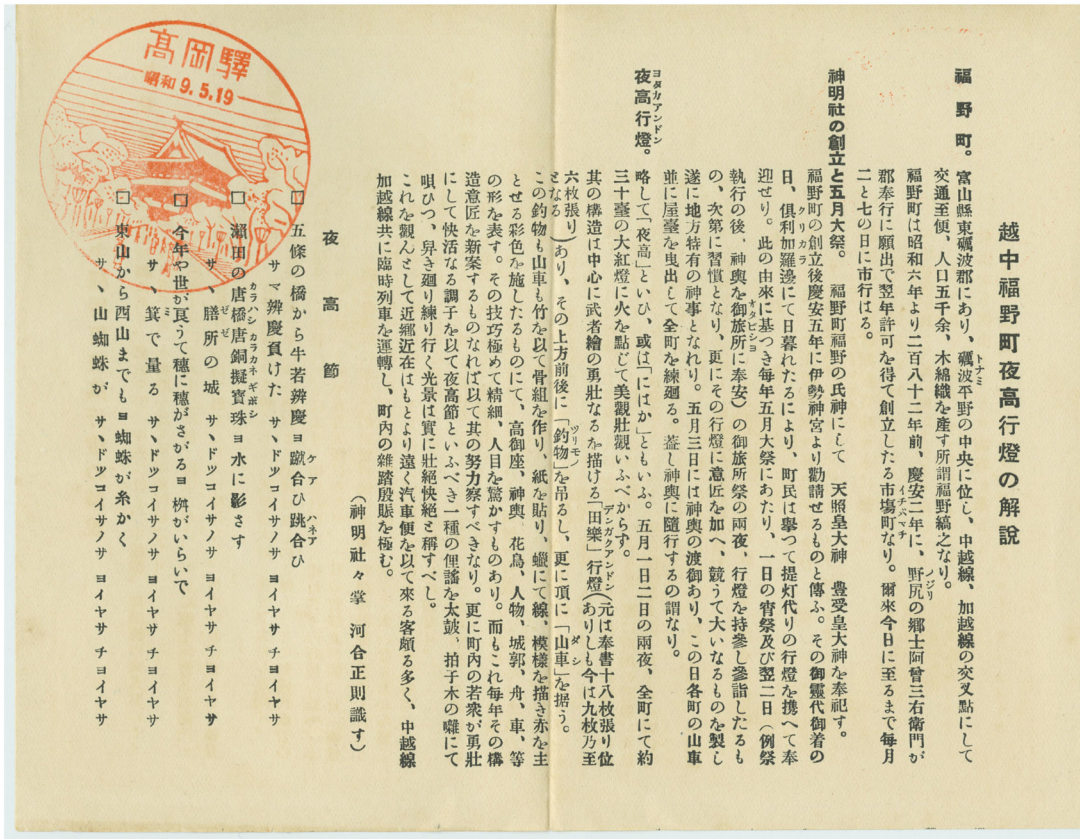 越中福野町夜高行燈の解說
福野町。 富山縣東礪波郡にあり、礪波平野の中央に位し、中越線、加越線の交叉點にして
交通至便、人口五千余、木綿織を產す所謂福野縞之なり。
福野町は昭和六年より二百八十二年前、慶安二年に、野尻の鄕士阿曾三右衞門が
郡奉行に願出で翌年許可を得て創立したる市塲町なり。爾來今日に至るまで每月
二と七の日に市行はる。
神明社の創立と五月大祭。 福野町福野の氏神にして 天照皇大神 豊受皇大神を奉祀す。
福野町の創立後慶安五年に伊勢神宮より勸請せるものと傳ふ。その御靈代御着の
日、俱利加羅邊にて日暮れたるにより、町民は擧つて提灯代りの行燈を携へて奉
迎せり。此の由來に基つき每年五月大祭にあたり、一日の宵祭及び翌二日(例祭
執行の後、神輿を御旅所に奉安)の御旅所祭の兩夜、行燈を持參し參詣したるも
の、次第に習慣となり、更にその行燈に意匠を加へ、競うて大いなるものを製し
遂に地方特有の神事となれり。五月三日には神輿の渡御あり、この日各町の山車
並に屋臺を曳出して全町を練廻る。蓋し神輿に隨行するの謂なり。
夜高行燈。 略して「夜高」といひ、或は「にはか」ともいふ。五月一日二日の兩夜、全町にて約
三十臺の大紅燈に火を點じて美觀壯觀いふべからず。
其の構造は中心に武者繪の勇壯なるを描ける「田樂」行燈(元は奉書十八枚張り位
ありしも今は九枚乃至六枚張り)あり、その上方前後に「釣物」を吊るし、更に頂に「山車」を据う。
となる
この釣物も山車も竹を以て骨組を作り、紙を貼り、蠟にて線、模樣を描き赤を主
とせる彩色を施したるものにて、高御座、神輿、花鳥、人物、城郭、舟、車、等
の形を表す。その技巧極めて精細、人目を驚かすものあり。而もこれ每年その構
造意匠を新案するものなれば以て其の努力察すべきなり。更に町內の若衆が勇壯
にして快活なる調子を以て夜高節といふべき一種の俚謠を太鼓、拍子木の囃にて
唄ひつゝ、舁き廻り練り行く光景は實に壯絕快絕と稱すべし。
これを觀んとして近鄕近在はもとより遠く汽車便を以て來る客頗る多く、中越線
加越線共に臨時列車を運轉し、町內の雜踏殷賑を極む。
(神明社々掌 河合正則識す)
夜高節
□ 五條の橋から牛若辨慶ヨ蹴合ひ跳合ひ
サマ辨慶負けた サヽドツコイサノサ ヨイヤサ チヨイヤサ
□ 瀨田の唐橋唐銅擬寶珠ヨ水に影さす
サヽ膳所の城 サヽドツコイサノサ ヨイヤサ チヨイヤサ
□ 今年や世が良うて穗に穗がさがるヨ 桝がいらいで
サヽ箕で量る サヽドツコイサノサ ヨイヤサ チヨイヤサ
□ 東山から西山までもヨ蜘蛛が糸かく
サヽ山蜘蛛が サヽドツコイサノサ ヨイヤサ チヨイヤサ
高岡驛
昭和9.5.19
トナミ
ノジリ
イチバマチ
クリカラ
オタビシヨ
ヨタカアンドン
デンガクアンドン
ツリモノ
ダシ
ケア ハネア
カラハシ カラカネギボシ
ゼゼ
ミ